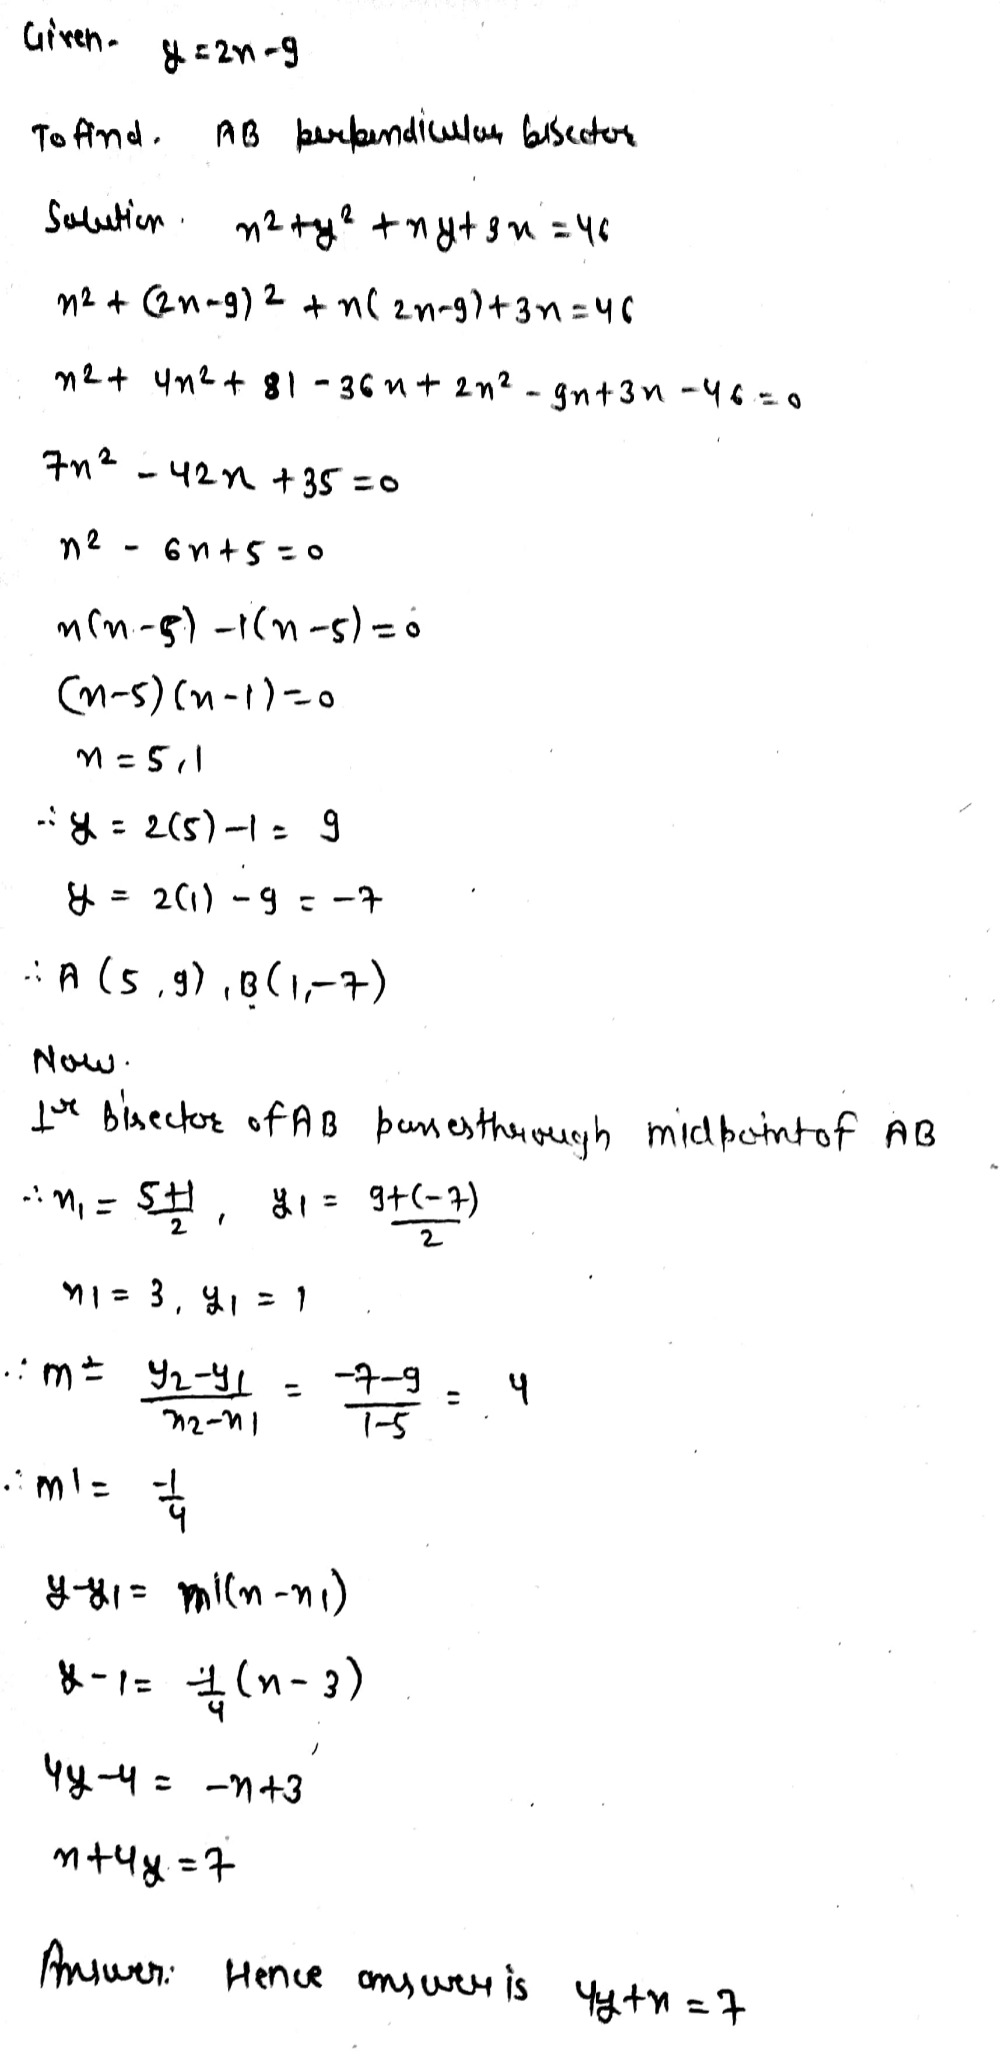 Given- y = 2x - 9
To find. AB perpendicular bisector
Solution. x2 + y² + xy + 3x = 46
x2 + (2x-9)2 + x(2x-9) + 3x = 46
x2 + 4x2 + 81 - 36x + 2x² - 9x + 3x - 46 = 0
7x² - 42x + 35 = 0
x² - 6x + 5 = 0
x(x-5) - 1(x-5) = 0
(x-5)(x-1) = 0
x = 5, 1
∴ y = 2(5) - 1 = 9
y = 2(1) - 9 = -7
∴ A (5, 9), B(1, -7)
Now.
bisector of AB passes through midpoint of AB
∴ x1 = 5+1/2, y1 = 9+(-7)/2
x1 = 3, y1 = 1
∴ m = y2-y1/x2-x1 = -7-9/1-5 = 4
∴ m' = -1/4
y-y1 = m'(x-x1)
y-1 = -1/4 (x-3)
4y-4 = -x+3
x+4y = 7
Answer: Hence answer is 4y+x = 7